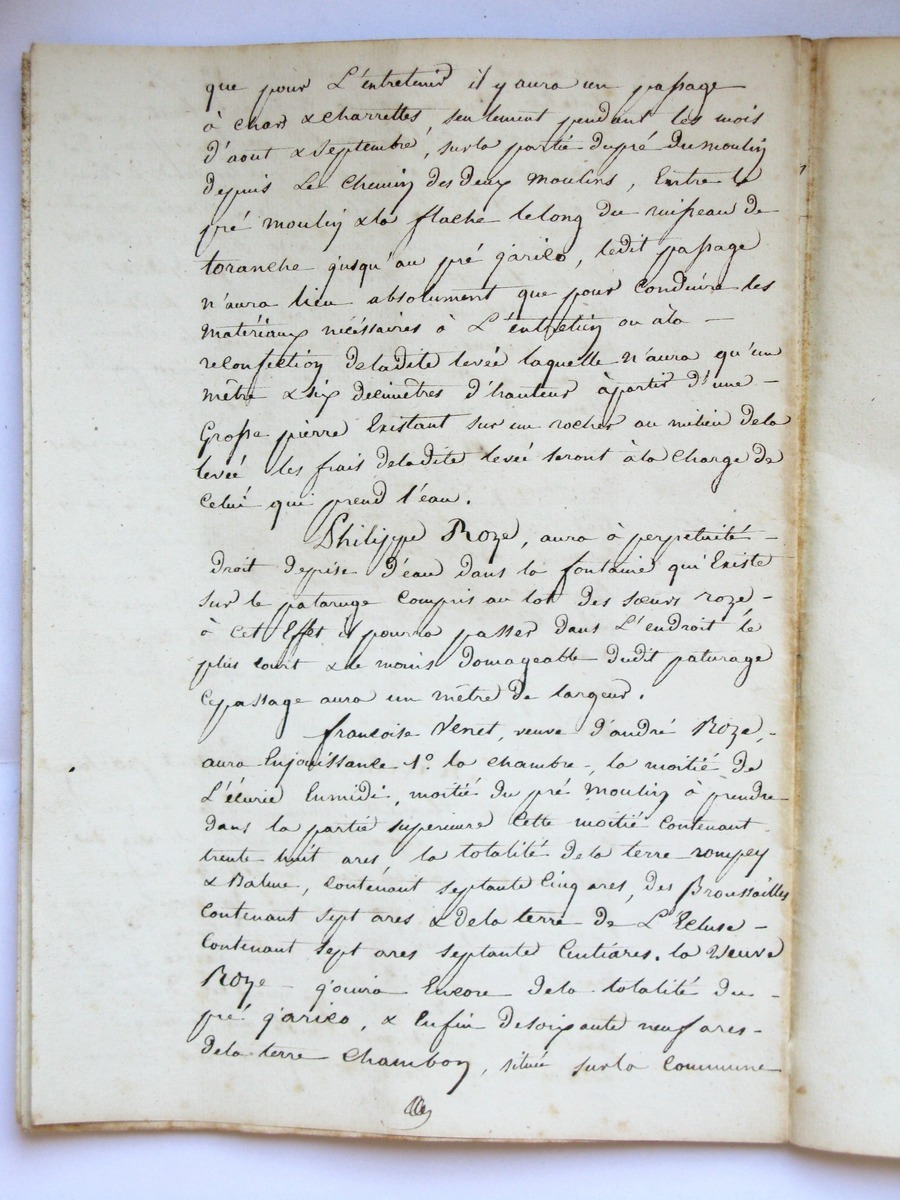 que pour L'entretenir il y aura un passage
à chars & charrettes, seulement pendant les mois
d'aout & septembre, sur la partie du pré du moulin
depuis Le Chemin des deux moulins, Entre le
pré moulin & la flache le long du ruisseau de
toranche jusqu'au pré garico, ledit passage
n'aura lieu absolument que pour Conduire les
matériaux nécéssaires à L'entretien ou à la —
reconfection de la dite levée laquelle n'aura qu'un
mètre & six decimètres d'hauteur à partir d'une —
Grosse pierre Existant sur un rocher au milieu de la
levée les frais de la dite levée seront à la Charge de
Celui qui prend l'eau.
Philippe Roze, aura à perpetuité —
droit de prise d'eau dans la fontaine qui Existe
sur le paturage Compris au lot des sœurs roze —
à Cet Effet il pourra passer dans L'endroit le
plus court & le moins domageable dudit paturage
Ce passage aura un mètre de largeur.
francoise Venet, veuve d'andré Roze, —
aura En jouissance 1º. la chambre, la moitié de
L'écurie En midi, moitié du pré moulin à prendre
dans la partie superieure Cette moitié Contenant
trente huit ares la totalité de la terre rompey
& Balme, Contenant septante Cinq ares, des Broussailles
Contenant sept ares & de la terre de L'Ecluse —
Contenant sept ares septante Centiares. la Veuve
Roze — jouira Encore de la totalité du —
pré garico, & Enfin de soixante neuf ares —
de la terre Chambon, située sur la Commune